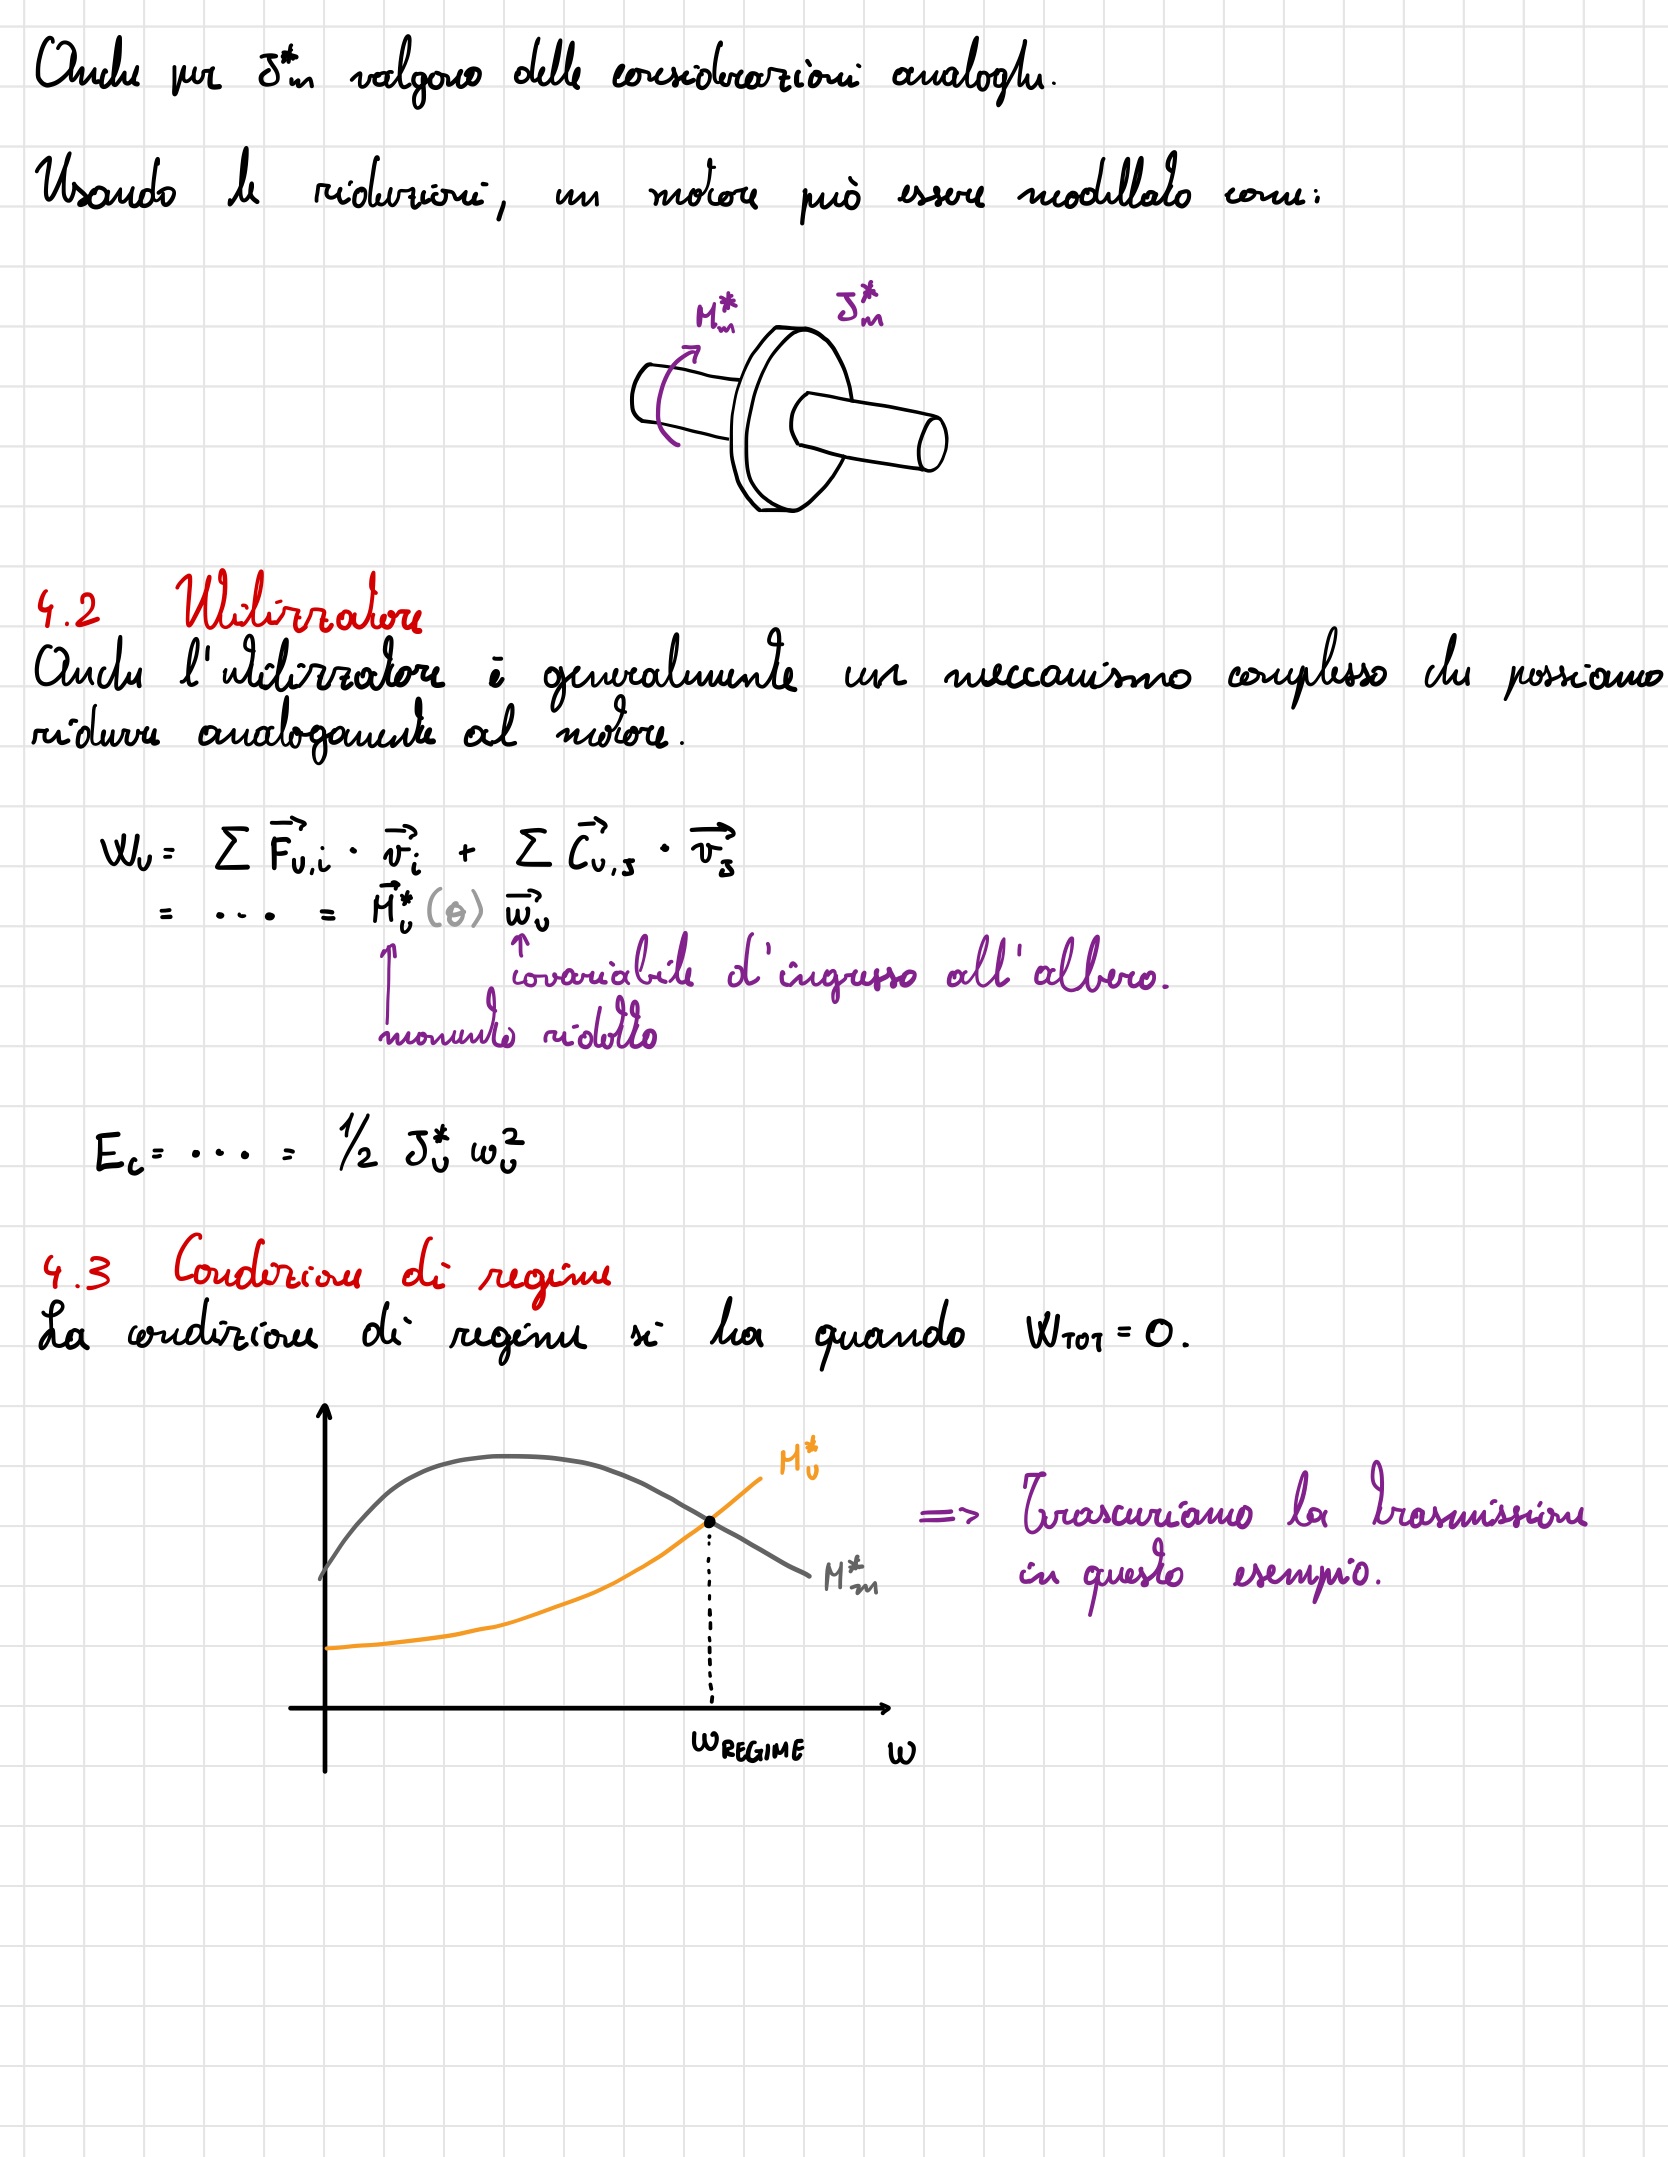 Anche per J*m valgono delle considerazioni analoghe.
Usando le riduzioni, un motore può essere modellato come:
M*m J*m
4.2 Utilizzatore
Anche l'utilizzatore è generalmente un meccanismo complesso che possiamo
ridurre analogamente al motore.
Wu = ∑ F⃗u,i · v⃗i + ∑ C⃗u,s · v⃗s
= ... = M⃗*u (θ) w⃗u
covariabile d'ingresso all'albero.
momento ridotto
Ec = ... = 1/2 J*u wu²
4.3 Condizione di regime
La condizione di regime si ha quando WTOT = 0.
M*u
=> Trascuriamo la trasmissione
in questo esempio.
M*m
wREGIME w